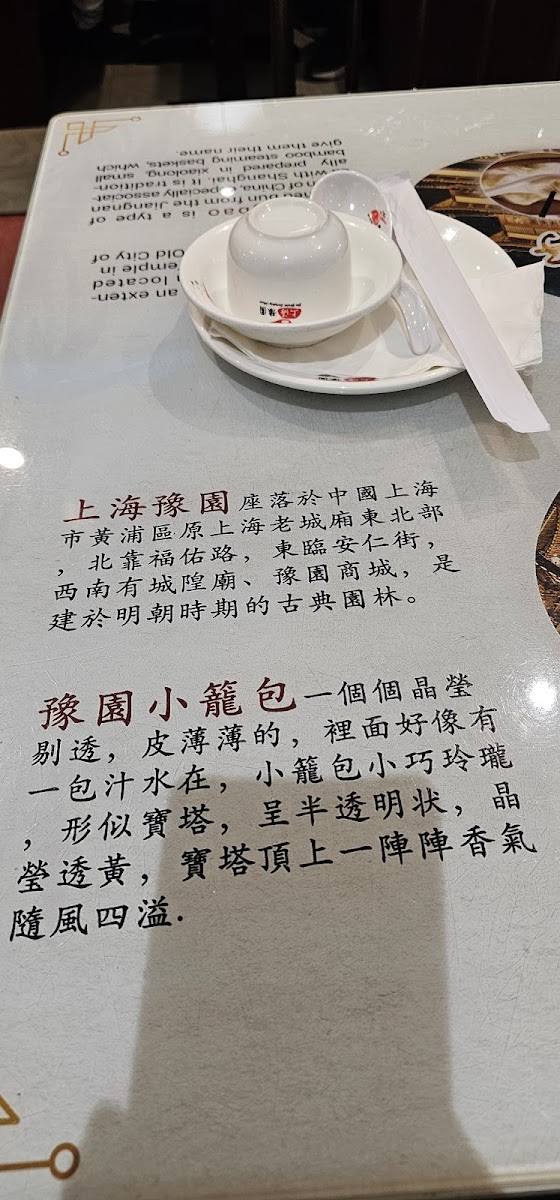 an exten-
located
Temple in
Old City of
bao is a type of
bun from the Jiangnan
of China, especially associat-
with Shanghai. It is tradition-
ally prepared in xiaolong, small
bamboo steaming baskets, which
give them their name.
豫園
上海
上海豫園座落於中國上海
市黃浦區原上海老城廂東北部
，北靠福佑路，東臨安仁街，
西南有城隍廟、豫園商城，是
建於明朝時期的古典園林。
豫園小籠包一個個晶瑩
剔透，皮薄薄的，裡面好像有
一包汁水在，小籠包小巧玲瓏
，形似寶塔，呈半透明状，晶
瑩透黃，寶塔頂上一陣陣香氣
隨風四溢.